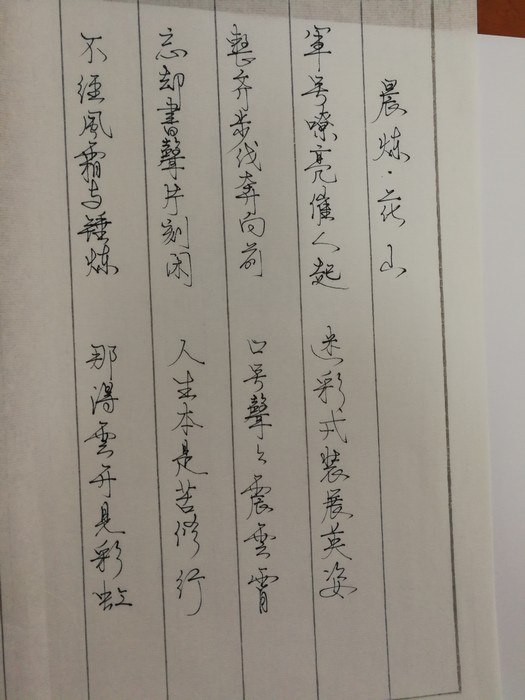 晨炼·花山
军号嘹亮催人起 迷彩戎装展英姿
整齐步伐奔向前 口号聲々震雲霄
忘却書聲片刻闲 人生本是苦修行
不经風霜与锤炼 那得雲开見彩虹